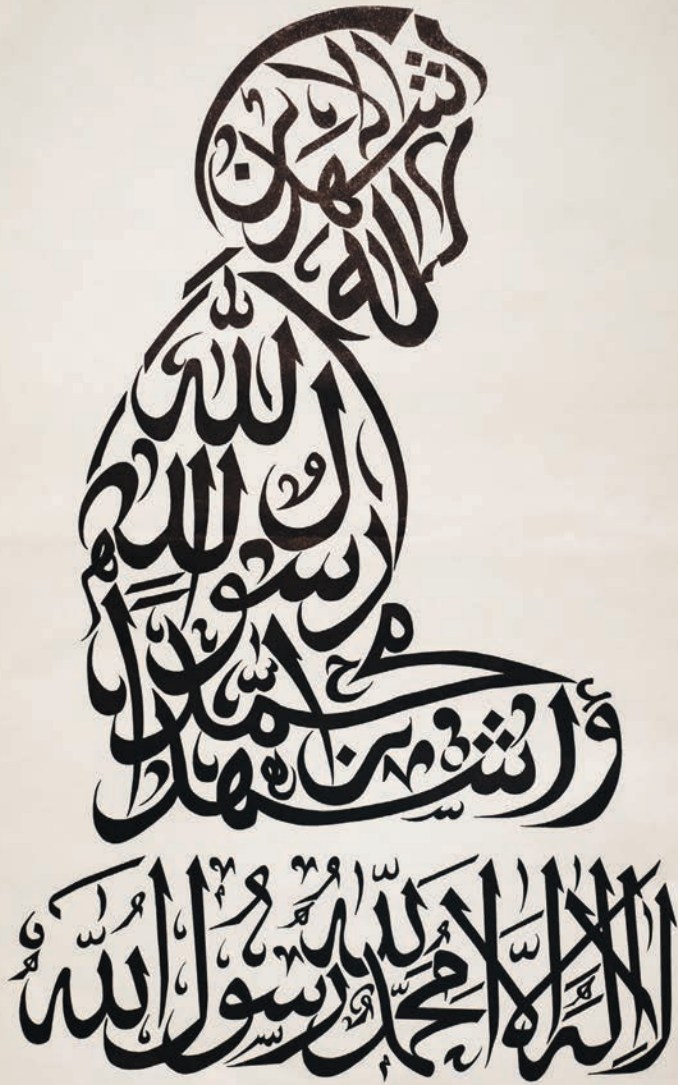 اشهد ان لا اله
الا الله
واشهد ان محمدا رسول الله
لا اله الا الله محمد رسول الله